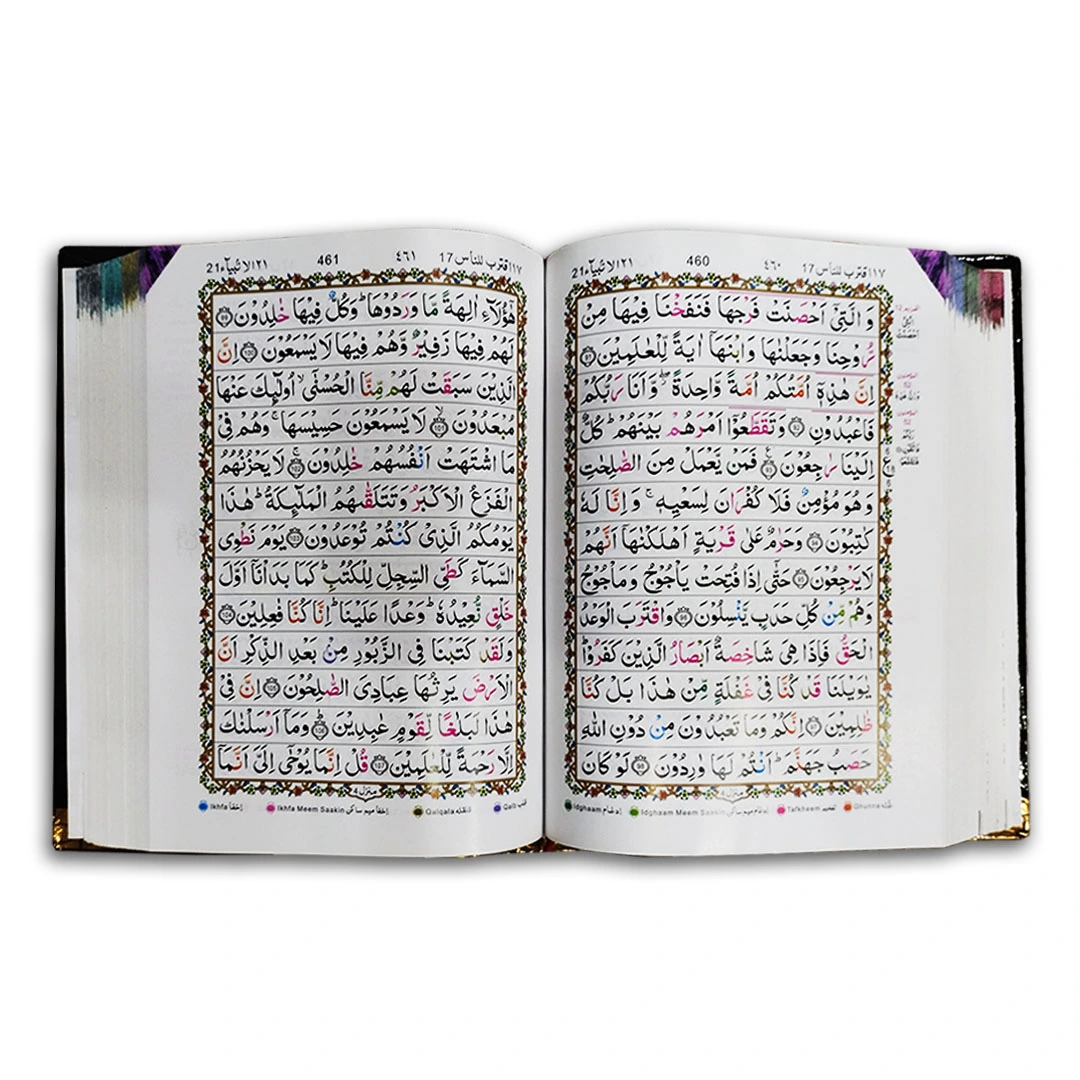 ١٧ اقترب للناس 17 ٤٦٠ 460 ٢١ الانبياء 21
وَالَّتِیْۤ اَحْصَنَتْ فَرْجَهَا فَنَفَخْنَا فِیْهَا مِنْ
رُّوْحِنَا وَجَعَلْنٰهَا وَابْنَهَاۤ اٰیَةً لِّلْعٰلَمِیْنَ 91
اِنَّ هٰذِهٖۤ اُمَّتُكُمْ اُمَّةً وَّاحِدَةً ۖ وَّاَنَا رَبُّكُمْ
فَاعْبُدُوْنِ 92 وَتَقَطَّعُوْۤا اَمْرَهُمْ بَیْنَهُمْ ؕ كُلٌّ
اِلَیْنَا رٰجِعُوْنَ 93 فَمَنْ یَّعْمَلْ مِنَ الصّٰلِحٰتِ
وَهُوَ مُؤْمِنٌ فَلَا كُفْرَانَ لِسَعْیِهٖ ۚ وَاِنَّا لَهٗ
كٰتِبُوْنَ 94 وَحَرٰمٌ عَلٰی قَرْیَةٍ اَهْلَكْنٰهَاۤ اَنَّهُمْ
لَا یَرْجِعُوْنَ 95 حَتّٰۤی اِذَا فُتِحَتْ یَاْجُوْجُ وَمَاْجُوْجُ
وَهُمْ مِّنْ كُلِّ حَدَبٍ یَّنْسِلُوْنَ 96 وَاقْتَرَبَ الْوَعْدُ
الْحَقُّ فَاِذَا هِیَ شَاخِصَةٌ اَبْصَارُ الَّذِیْنَ كَفَرُوْا ؕ
یٰوَیْلَنَا قَدْ كُنَّا فِیْ غَفْلَةٍ مِّنْ هٰذَا بَلْ كُنَّا
ظٰلِمِیْنَ 97 اِنَّكُمْ وَمَا تَعْبُدُوْنَ مِنْ دُوْنِ اللّٰهِ
حَصَبُ جَهَنَّمَ ؕ اَنْتُمْ لَهَا وٰرِدُوْنَ 98 لَوْ كَانَ
منزل ٤
Idghaam ادغام Idghaam Meem Saakin ادغام میم ساکن Tafkheem تفخیم Ghunna غنّه
١٧ اقترب للناس 17 ٤٦١ 461 ٢١ الانبياء 21
هٰۤؤُلَآءِ اٰلِهَةً مَّا وَرَدُوْهَا ؕ وَكُلٌّ فِیْهَا خٰلِدُوْنَ 99
لَهُمْ فِیْهَا زَفِیْرٌ وَّهُمْ فِیْهَا لَا یَسْمَعُوْنَ 100 اِنَّ
الَّذِیْنَ سَبَقَتْ لَهُمْ مِّنَّا الْحُسْنٰۤی ۙ اُولٰٓىِٕكَ عَنْهَا
مُبْعَدُوْنَ 101 لَا یَسْمَعُوْنَ حَسِیْسَهَا ۚ وَهُمْ فِیْ
مَا اشْتَهَتْ اَنْفُسُهُمْ خٰلِدُوْنَ 102 لَا یَحْزُنُهُمُ
الْفَزَعُ الْاَكْبَرُ وَتَتَلَقّٰىهُمُ الْمَلٰٓىِٕكَةُ ؕ هٰذَا
یَوْمُكُمُ الَّذِیْ كُنْتُمْ تُوْعَدُوْنَ 103 یَوْمَ نَطْوِی
السَّمَآءَ كَطَیِّ السِّجِلِّ لِلْكُتُبِ ؕ كَمَا بَدَاْنَاۤ اَوَّلَ
خَلْقٍ نُّعِیْدُهٗ ؕ وَعْدًا عَلَیْنَا ؕ اِنَّا كُنَّا فٰعِلِیْنَ 104
وَلَقَدْ كَتَبْنَا فِی الزَّبُوْرِ مِنْۢ بَعْدِ الذِّكْرِ اَنَّ
الْاَرْضَ یَرِثُهَا عِبَادِیَ الصّٰلِحُوْنَ 105 اِنَّ فِیْ
هٰذَا لَبَلٰغًا لِّقَوْمٍ عٰبِدِیْنَ 106 وَمَاۤ اَرْسَلْنٰكَ
اِلَّا رَحْمَةً لِّلْعٰلَمِیْنَ 107 قُلْ اِنَّمَا یُوْحٰۤی اِلَیَّ اَنَّمَاۤ
منزل ٤
Ikhfa اخفا Ikhfa Meem Saakin اخفا میم ساکن Qalqala قلقله Qalb قلب